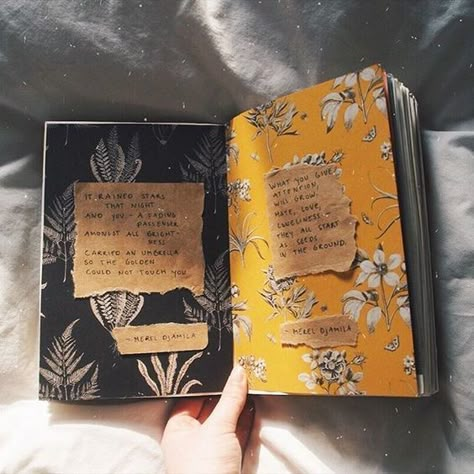 IT RAINED STARS
THAT NIGHT
AND YOU - A FADING
PASSENGER
AMONGST ALL BRIGHT-
NESS
CARRIED AN UMBRELLA
SO THE GOLDEN
COULD NOT TOUCH YOU
~ MEREL DJAMILA
WHAT YOU GIVE
ATTENTION,
WILL GROW.
HATE, LOVE,
LONELINESS -
THEY ALL START
AS SEEDS
IN THE GROUND.
~ MEREL DJAMILA